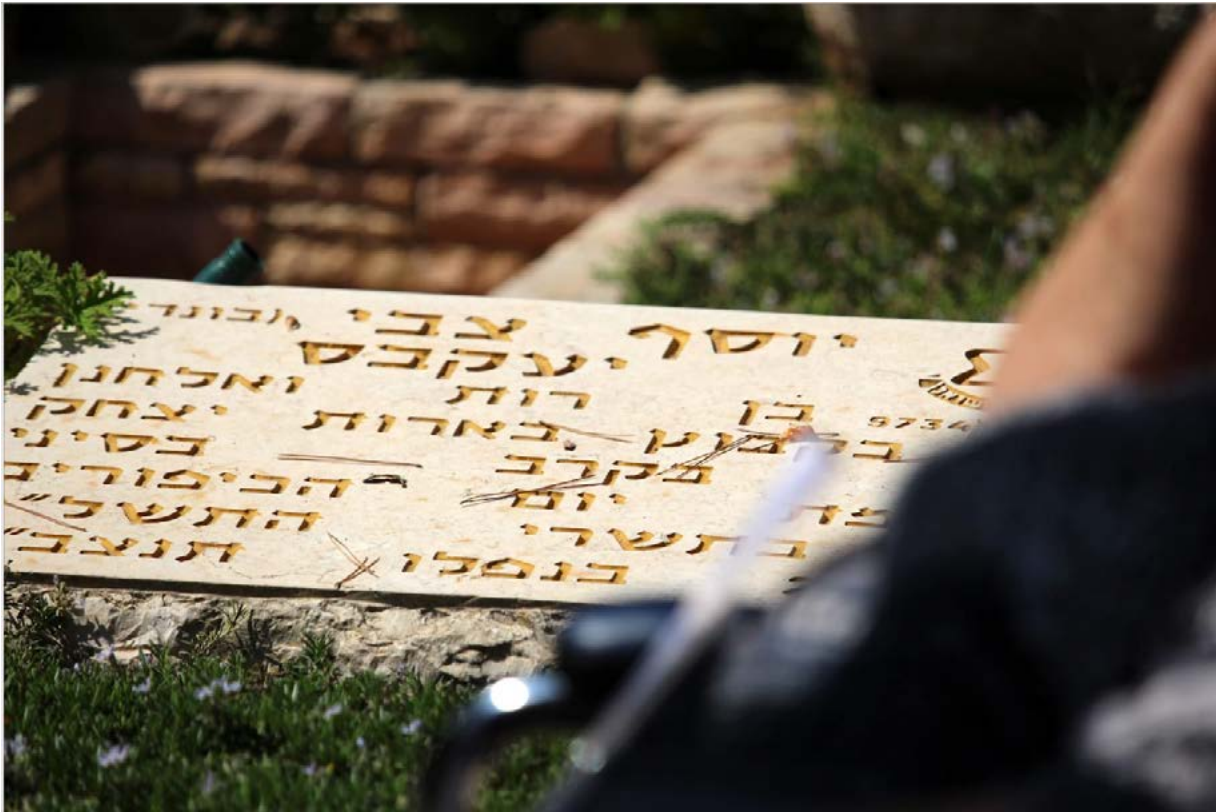 יוסף צבי
יעקבס
בן רות ואלחנן
5734
בקבוץ בארות יצחק
בקרב בסיני
יום הכיפורים
בתשרי התשל"
בנפלו תנצב"